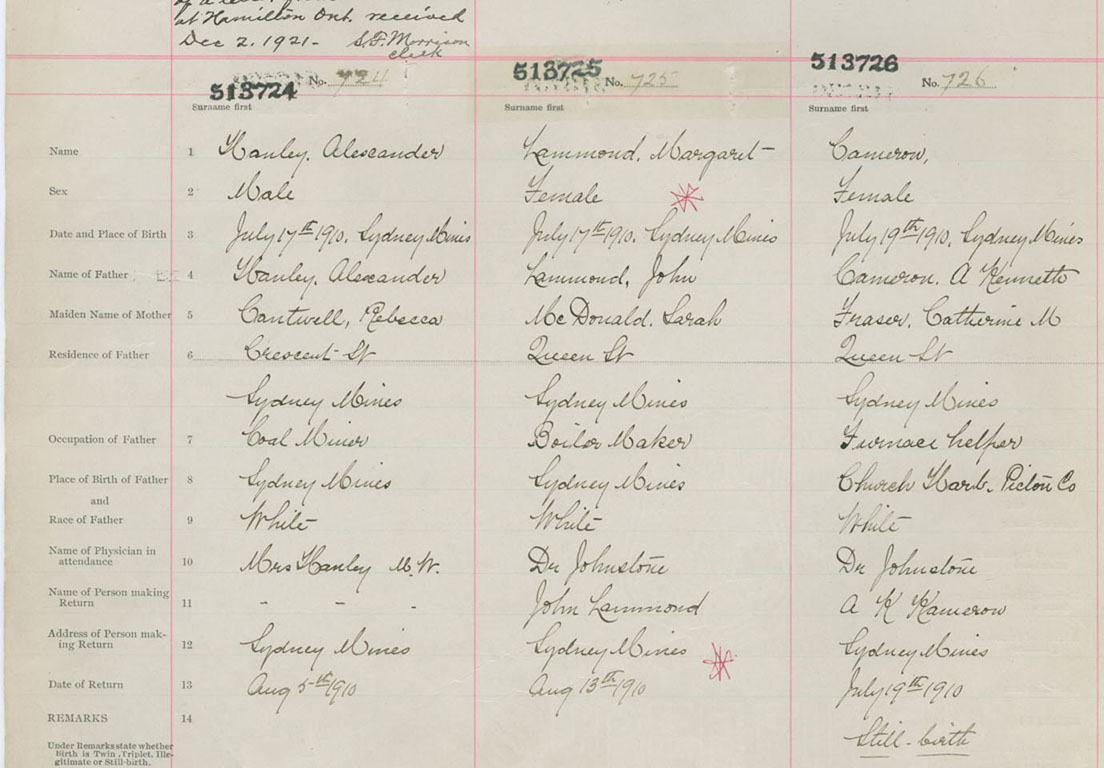 at Hamilton Ont. received
Dec 2. 1921- S.F. Morrison
clerk
513724 No. 724 513725 No. 725 513726 No. 726
Surname first Surname first Surname first
Name 1 Hanley, Alexander Lammond, Margaret Cameron,
Sex 2 Male Female Female
Date and Place of Birth 3 July 17th 1910, Sydney Mines July 17th 1910, Sydney Mines July 19th 1910, Sydney Mines
Name of Father 4 Hanley, Alexander Lammond, John Cameron, A Kenneth
Maiden Name of Mother 5 Cantwell, Rebecca McDonald, Sarah Fraser, Catherine M
Residence of Father 6 Crescent St Queen St Queen St
Sydney Mines Sydney Mines Sydney Mines
Occupation of Father 7 Coal Miner Boiler Maker Furnace helper
Place of Birth of Father 8 Sydney Mines Sydney Mines Church Harb. Pictou Co
and
Race of Father 9 White White White
Name of Physician in
attendance 10 Mrs Hanley M.W. Dr Johnstone Dr Johnstone
Name of Person making
Return 11 - - - John Lammond A K Kameron
Address of Person mak-
ing Return 12 Sydney Mines Sydney Mines Sydney Mines
Date of Return 13 Aug 5th 1910 Aug 13th 1910 July 19th 1910
REMARKS 14
Still-birth
Under Remarks state whether
birth is Twin, Triplet, Ille-
gitimate or Still-birth.